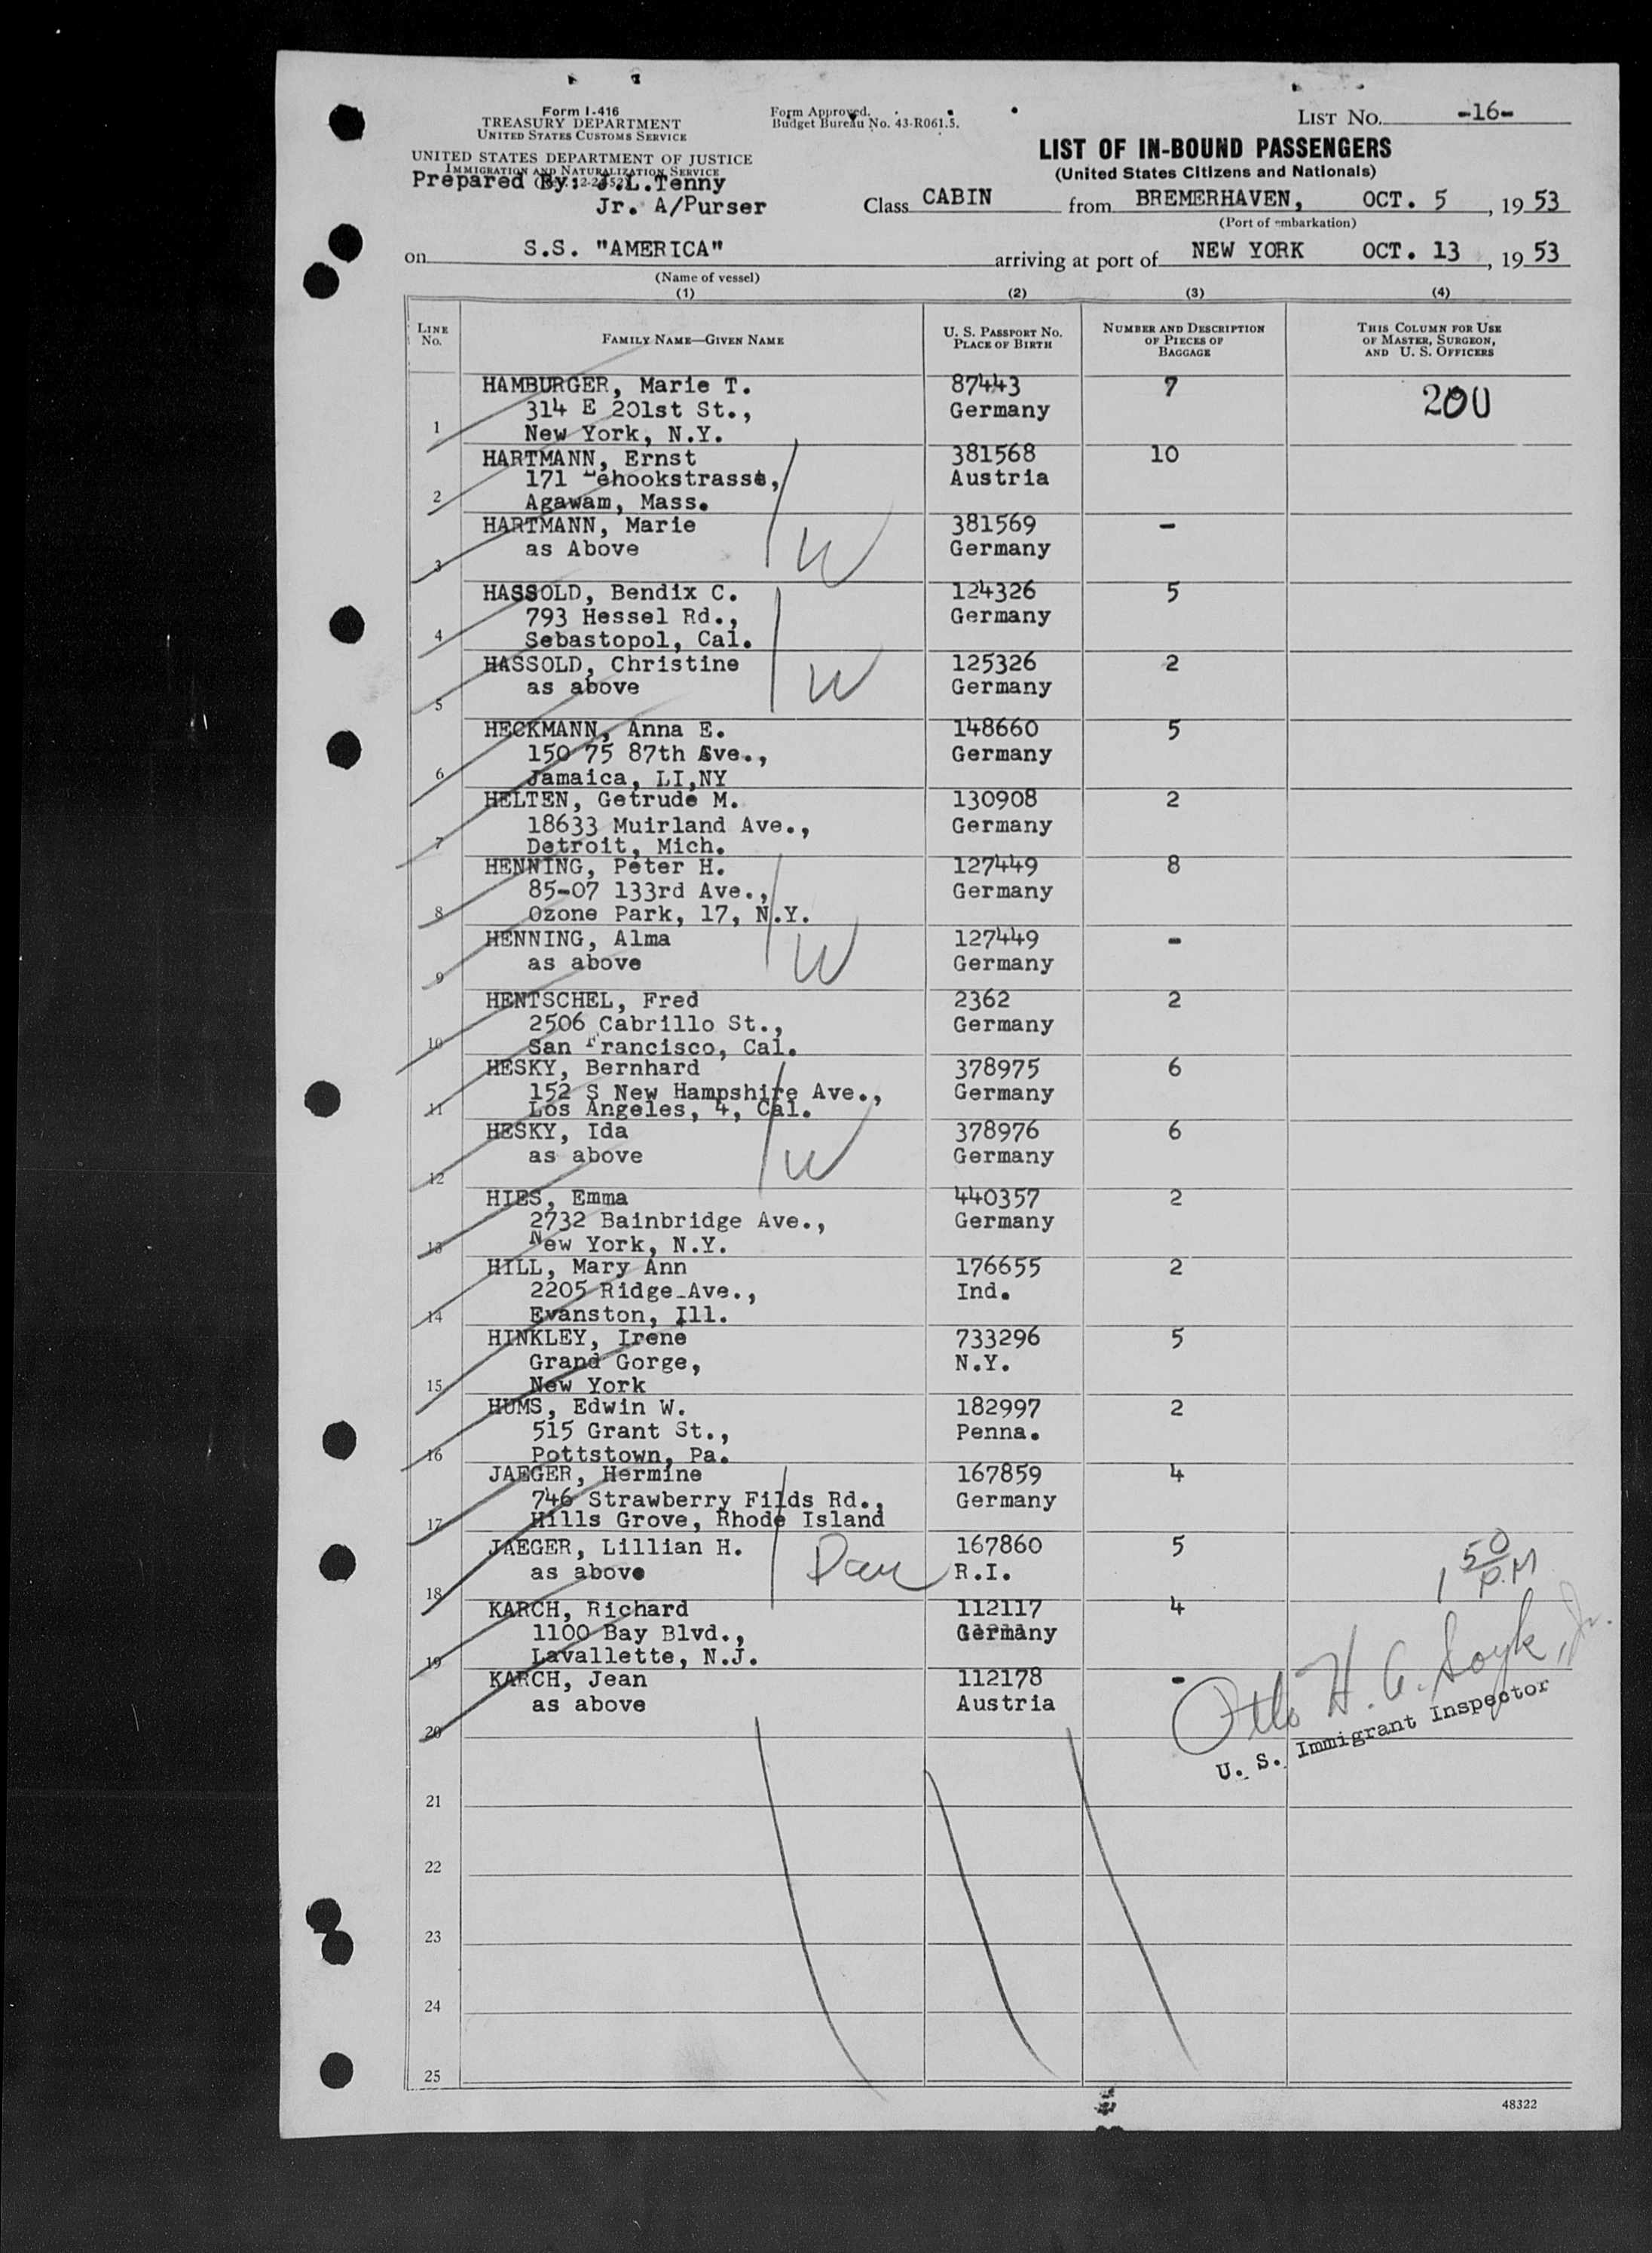 Form I-416
TREASURY DEPARTMENT
UNITED STATES CUSTOMS SERVICE
UNITED STATES DEPARTMENT OF JUSTICE
IMMIGRATION AND NATURALIZATION SERVICE
Prepared By: J.L.Tenny
Jr. A/Purser
Form Approved.
Budget Bureau No. 43-R061.5.
LIST NO. -16-
LIST OF IN-BOUND PASSENGERS
(United States Citizens and Nationals)
Class CABIN from BREMERHAVEN, OCT. 5, 1953
(Port of embarkation)
on S.S. "AMERICA" arriving at port of NEW YORK OCT. 13, 1953
(Name of vessel)
(1) (2) (3) (4)
LINE NO. FAMILY NAME—GIVEN NAME U. S. PASSPORT NO. PLACE OF BIRTH NUMBER AND DESCRIPTION OF PIECES OF BAGGAGE THIS COLUMN FOR USE OF MASTER, SURGEON, AND U. S. OFFICERS
HAMBURGER, Marie T. 87443 7 200
314 E 201st St., Germany
1 New York, N.Y.
HARTMANN, Ernst 381568 10
171 Lehookstrasse, Austria
2 Agawam, Mass.
HARTMANN, Marie 381569 -
as Above Germany
3 W
HASSOLD, Bendix C. 124326 5
793 Hessel Rd., Germany
4 Sebastopol, Cal.
HASSOLD, Christine 125326 2
as above W Germany
5
HECKMANN, Anna E. 148660 5
150 75 87th Ave., Germany
6 Jamaica, LI,NY
HELTEN, Getrude M. 130908 2
18633 Muirland Ave., Germany
7 Detroit, Mich.
HENNING, Peter H. 127449 8
85-07 133rd Ave., Germany
8 Ozone Park, 17, N.Y.
HENNING, Alma 127449 -
as above W Germany
9
HENTSCHEL, Fred 2362 2
2506 Cabrillo St., Germany
10 San Francisco, Cal.
HESKY, Bernhard 378975 6
152 S New Hampshire Ave., Germany
11 Los Angeles, 4, Cal.
HESKY, Ida 378976 6
as above W Germany
12
HIES, Emma 440357 2
2732 Bainbridge Ave., Germany
13 New York, N.Y.
HILL, Mary Ann 176655 2
2205 Ridge Ave., Ind.
14 Evanston, Ill.
HINKLEY, Irene 733296 5
Grand Gorge, N.Y.
15 New York
HUMS, Edwin W. 182997 2
515 Grant St., Penna.
16 Pottstown, Pa.
JAEGER, Hermine 167859 4
746 Strawberry Filds Rd., Germany
17 Hills Grove, Rhode Island
JAEGER, Lillian H. 167860 5
as above Dau R.I. 1 50 P.M
18
KARCH, Richard 112117 4
1100 Bay Blvd., Germany
19 Lavallette, N.J.
KARCH, Jean 112178 -
as above Austria
20
Otto H. G. Soyk, Jr.
U. S. Immigrant Inspector
21
22
23
24
25
48322